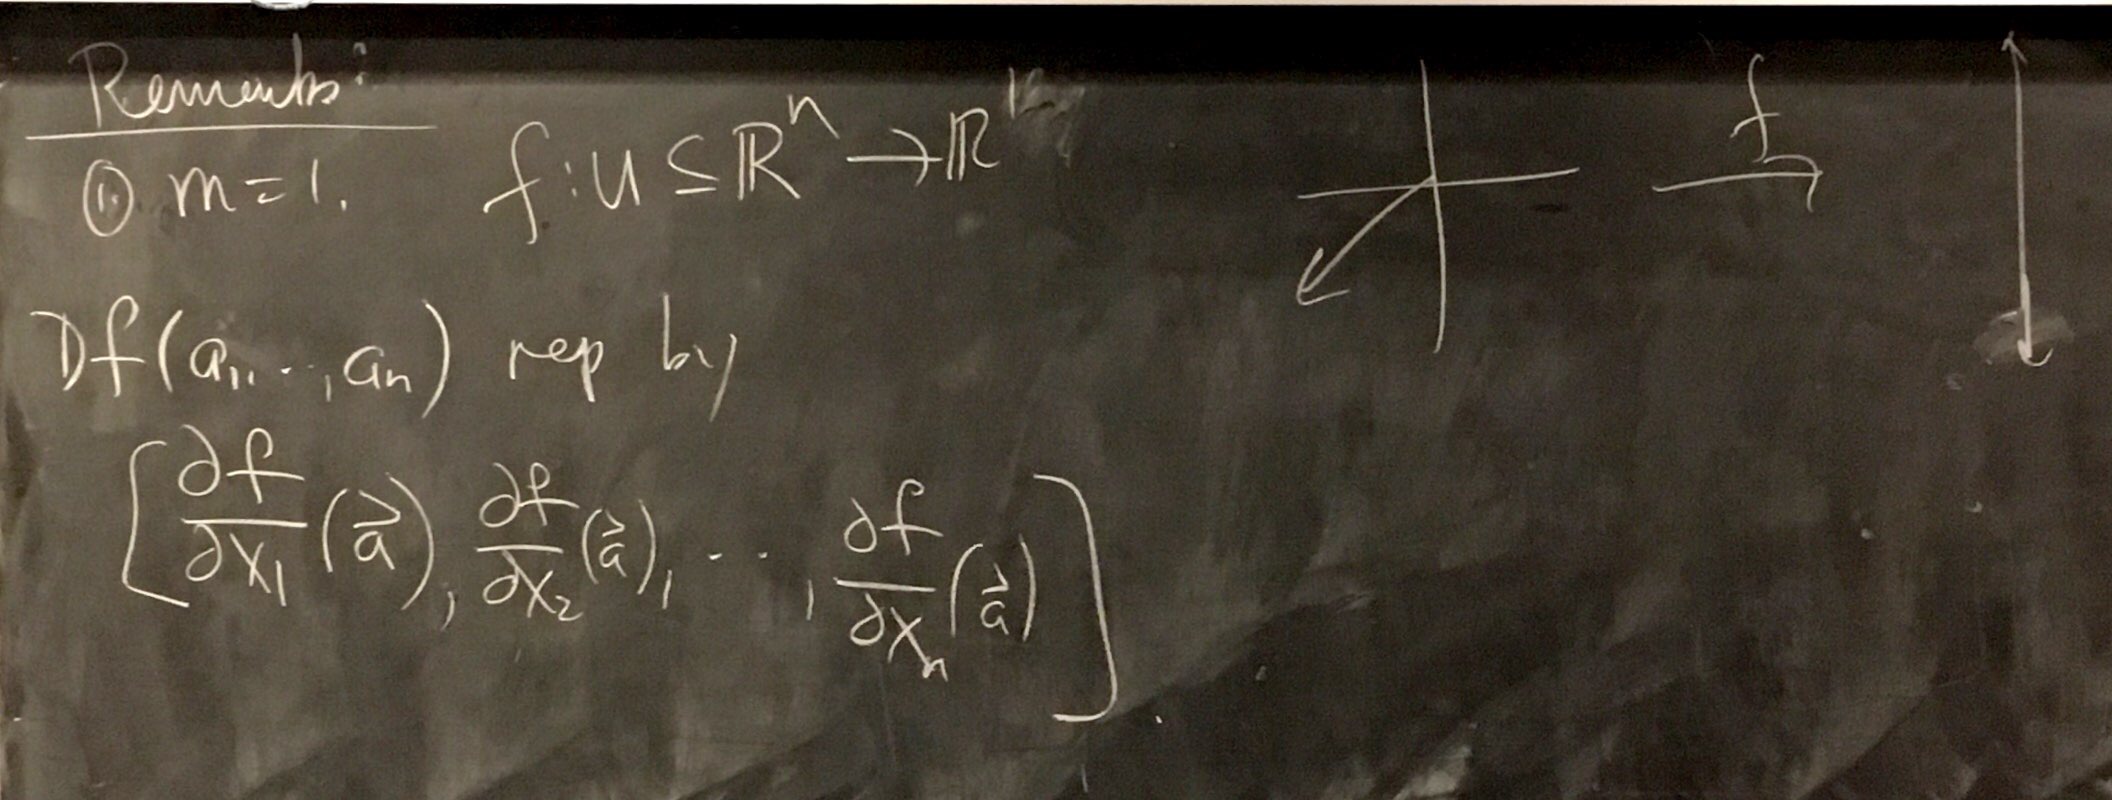 Remarks:
① m=1. f: U ⊆ ℝⁿ → ℝ¹
f
Df(a₁,...,aₙ) rep by
[∂f/∂x₁(a⃗), ∂f/∂x₂(a⃗), ..., ∂f/∂xₙ(a⃗)]